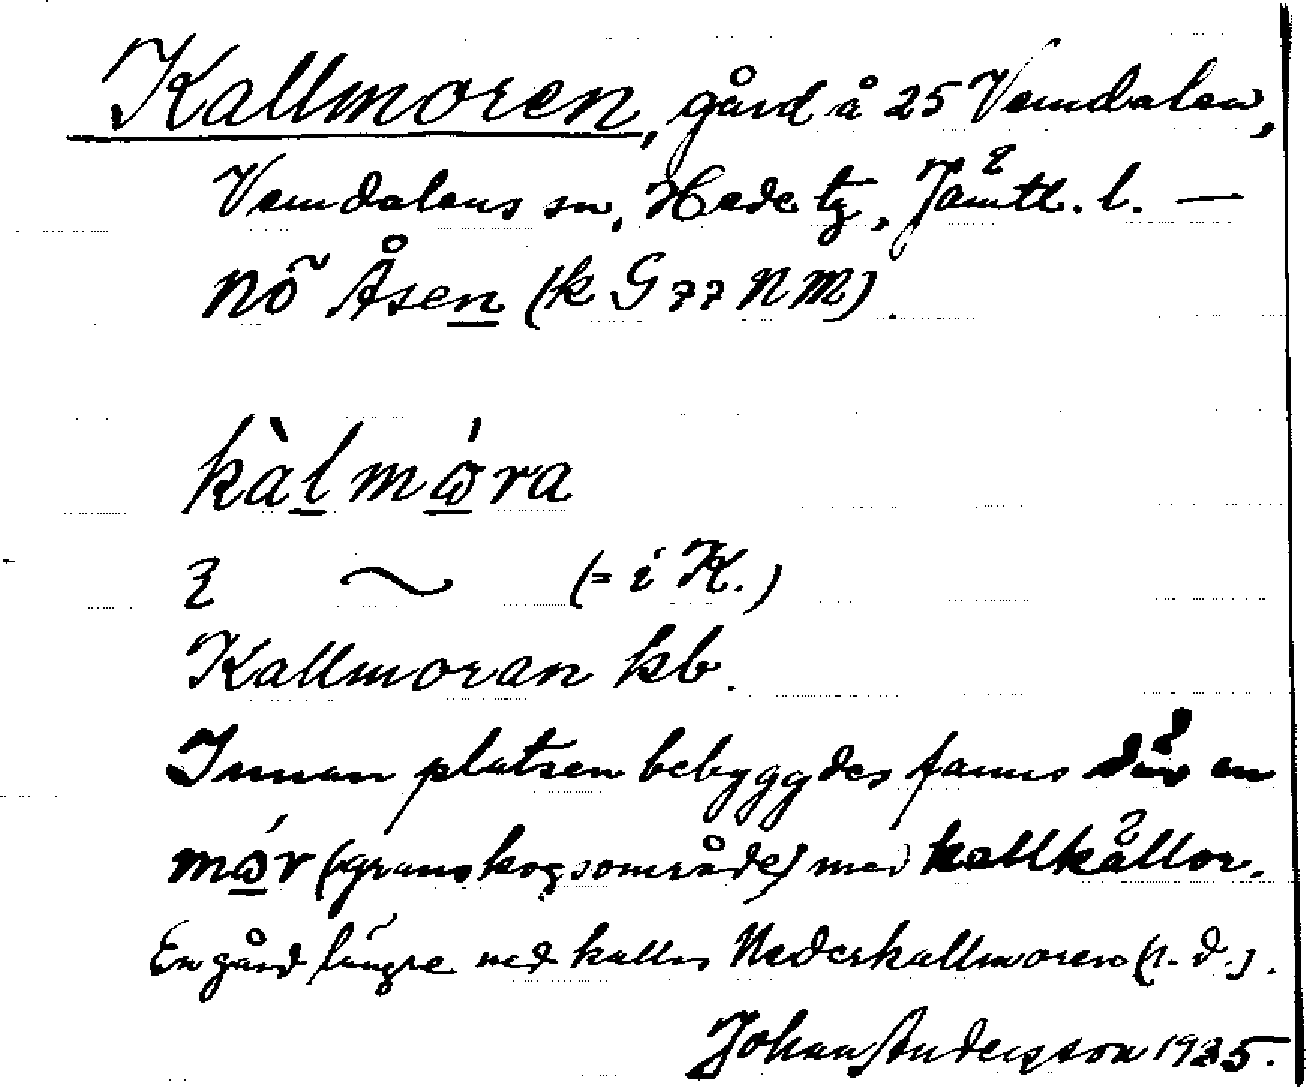 Kallmoren, gård å 25 Vemdalen,
Vemdalens sn, Hede tg, Jämtl. l. —
nö Åsen (k G 77 N M).
kàlmώ̲ra
ʅ ~ (= i K.)
Kallmoran kb.
Innan platsen bebyggdes fanns där en
mώ̲r (granskogsområde) med kallkällor.
En gård längre ned kallas Nederkallmoren (s. d.).
Johan Andersson 1935.